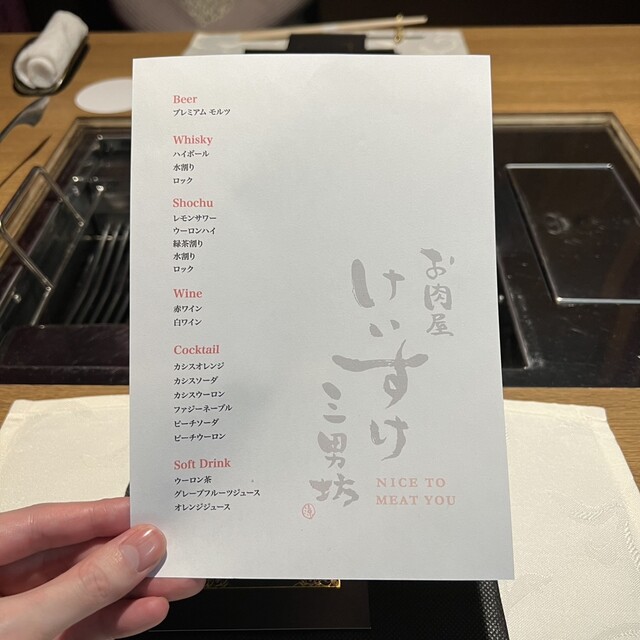 Beer
プレミアム モルツ
Whisky
ハイボール
水割り
ロック
Shochu
レモンサワー
ウーロンハイ
緑茶割り
水割り
ロック
Wine
赤ワイン
白ワイン
Cocktail
カシスオレンジ
カシスソーダ
カシスウーロン
ファジーネーブル
ピーチソーダ
ピーチウーロン
Soft Drink
ウーロン茶
グレープフルーツジュース
オレンジジュース
お肉屋
けいすけ
三男坊
NICE TO
MEAT YOU